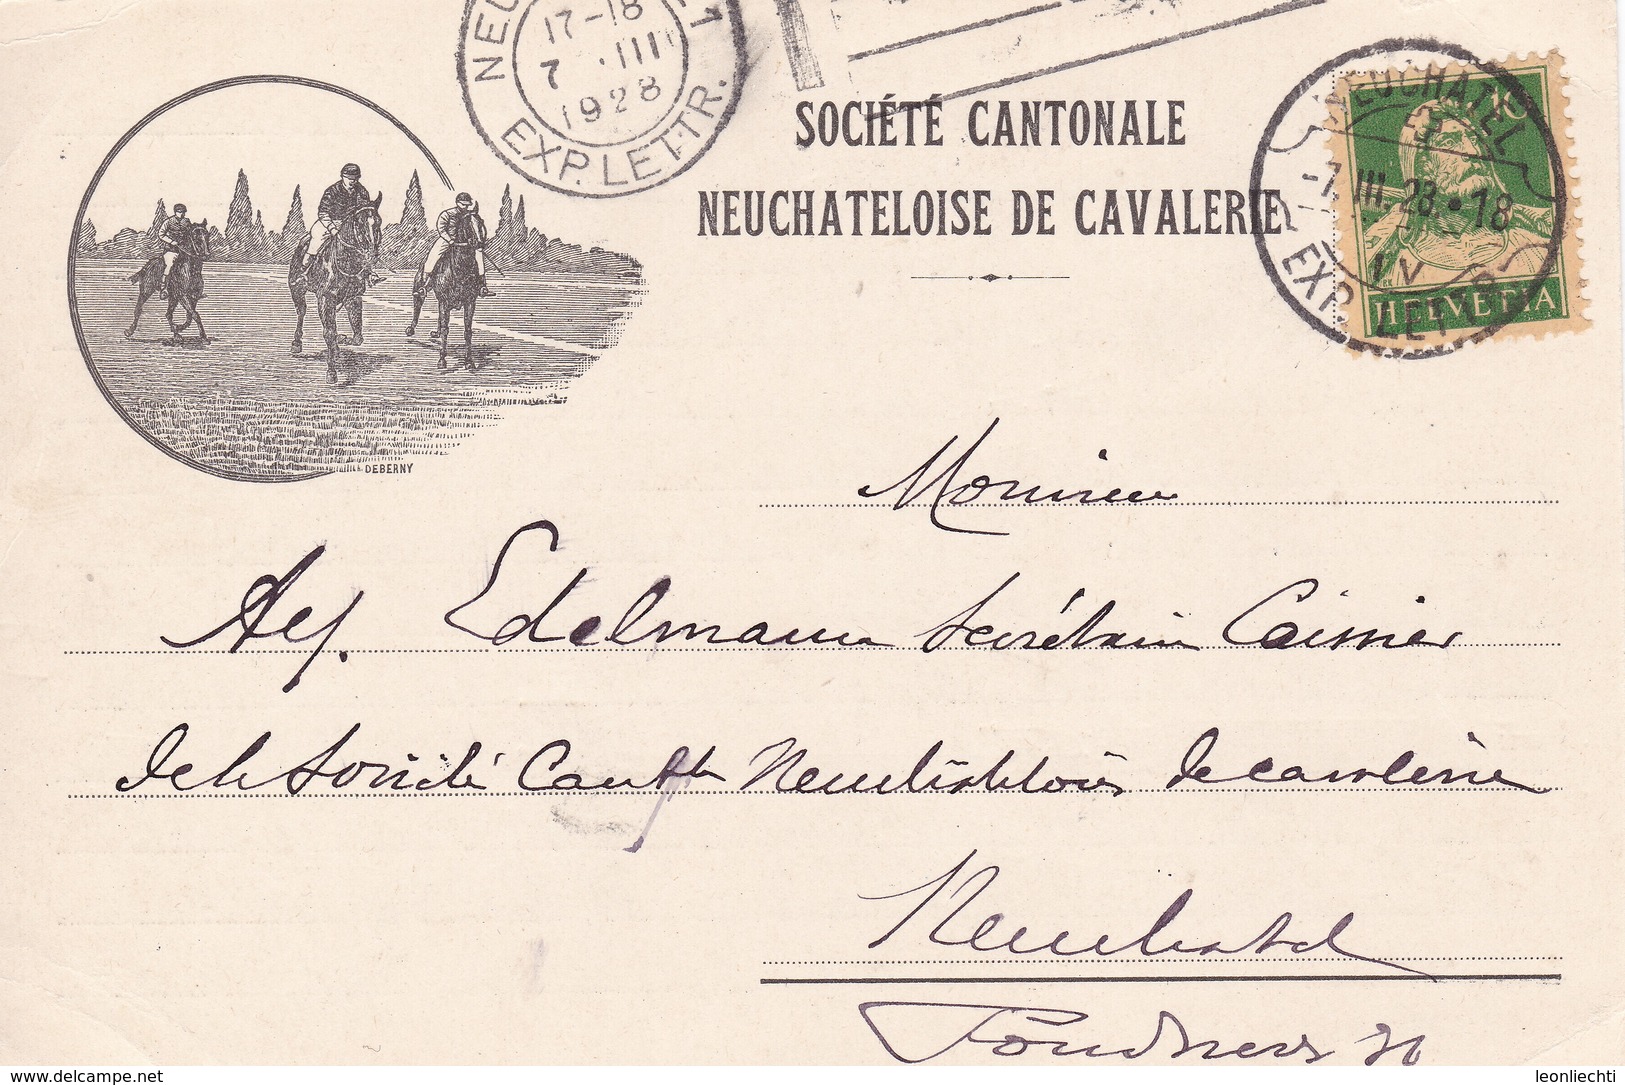 NEU 1
17-18
7 ·III
1928
EXP. LETTR.
SOCIÉTÉ CANTONALE
NEUCHATELOISE DE CAVALERIE
NEUCHATEL
-7.III.28.•18
EXP. LETTR
HELVETIA
DEBERNY
Monsieur
Alf. Edelmann Secrétaire Caissier
de la Société Cant. Neuchâteloise de cavalerie
Neuchatel
leonliechti
www.delcampe.net